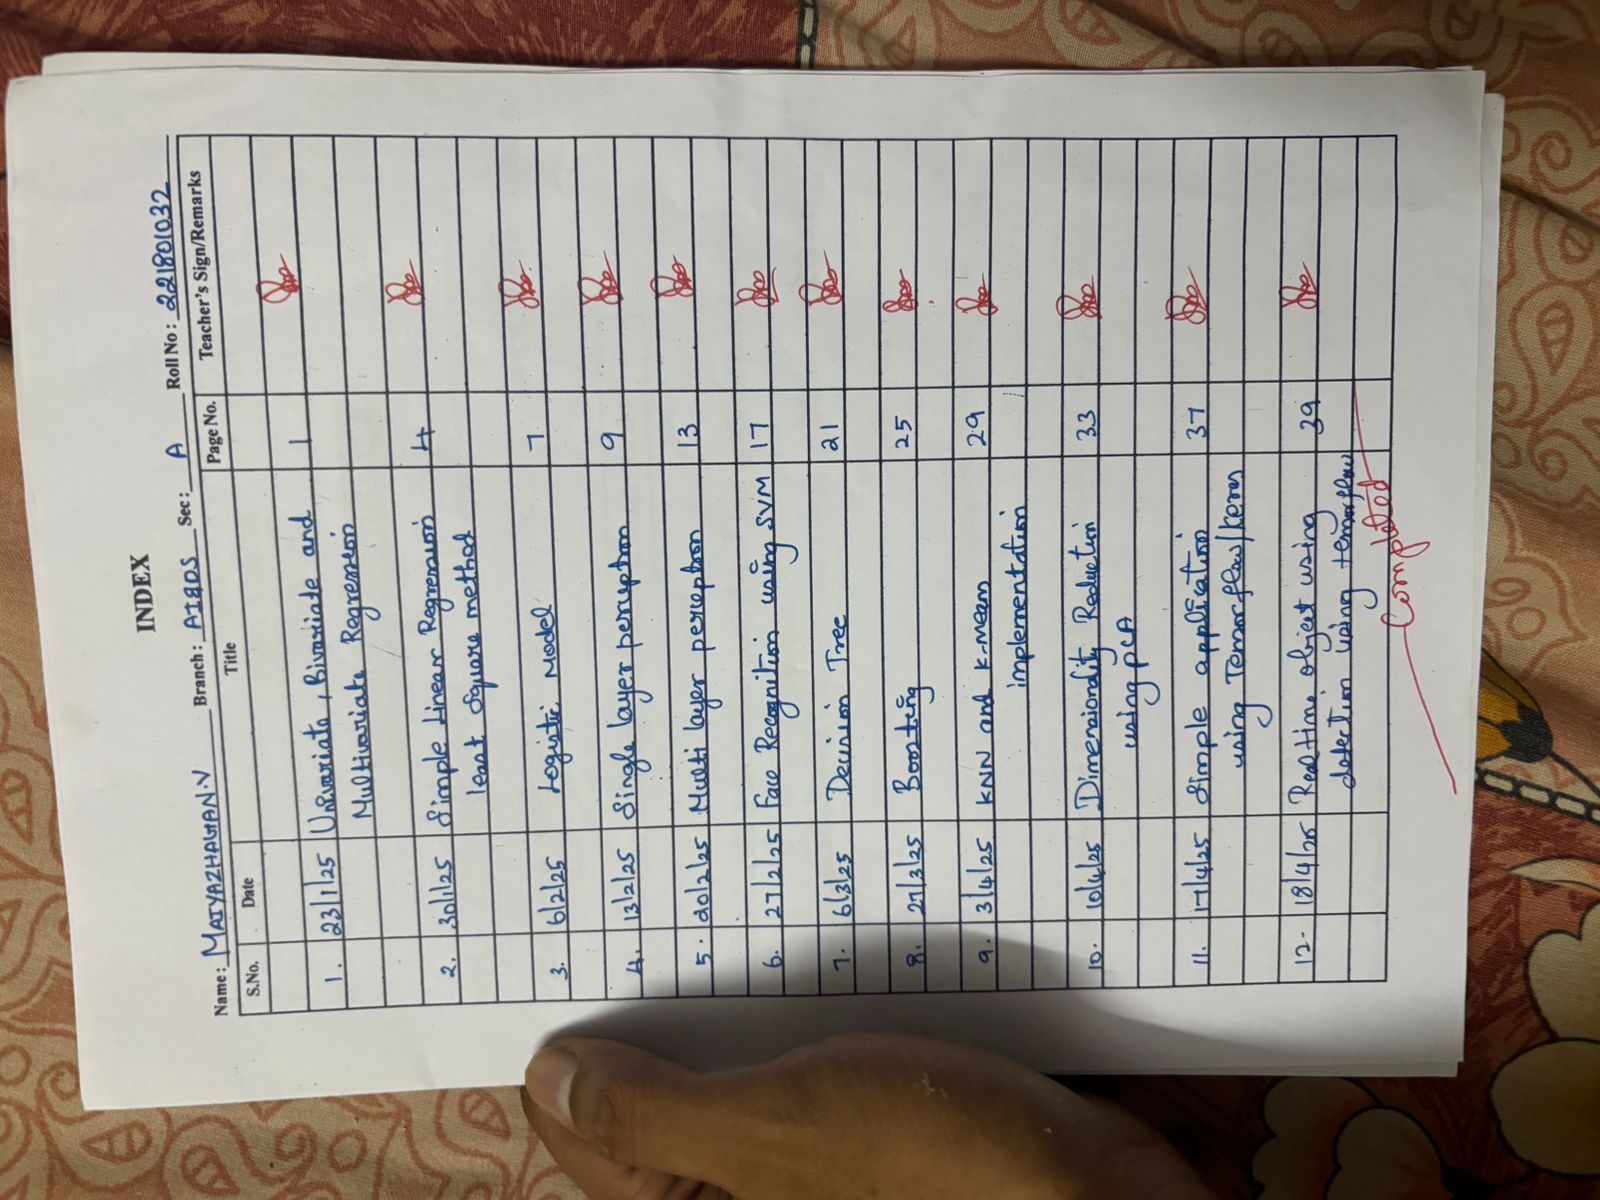 INDEX
Name: MATYAZHAGAN.V Branch: AIBDS Sec: A Roll No: 221801032
S.No. Date Title Page No. Teacher's Sign/Remarks
1. 23/1/25 Univariate, Bivariate and 1
Multivariate Regression
2. 30/1/25 Simple Linear Regression 4
least Square method
3. 6/2/25 Logistic Model 7
4. 13/2/25 Single layer perceptron 9
5. 20/2/25 Multi layer perceptron 13
6. 27/2/25 Face Recognition using SVM 17
7. 6/3/25 Decision Tree 21
8. 27/3/25 Boosting 25
9. 3/4/25 KNN and K-mean 29
implementation
10. 10/4/25 Dimensionality Reduction 33
using PCA
11. 17/4/25 Simple application 37
using Tensorflow/keras
12. 18/4/25 Realtime object using 39
detection using tensorflow
Completed